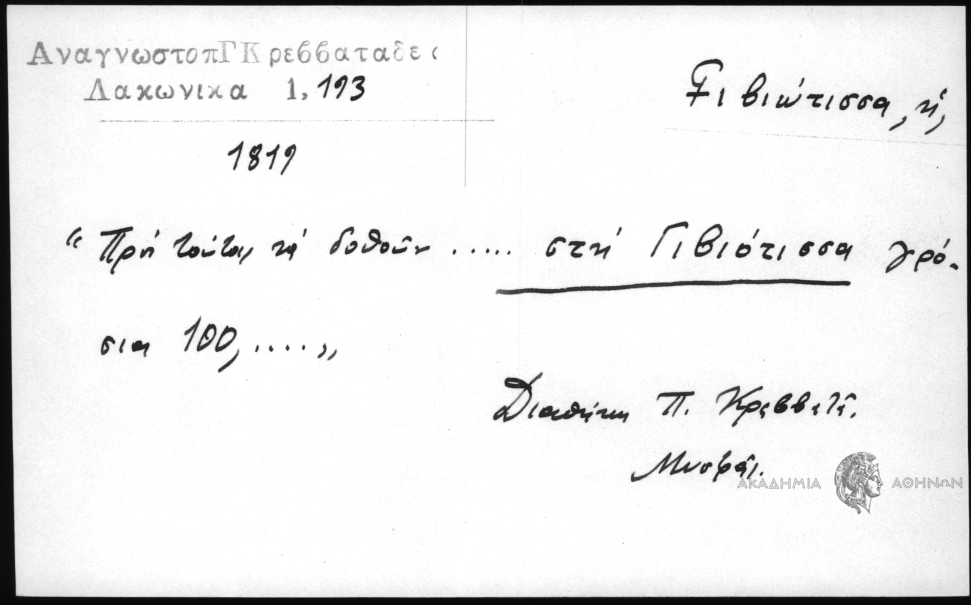 ΑναγνωστοπΓΚρεββαταδες
Λακωνικα 1, 193
Γιβιώτισσα, ἡ,
1819
“ Πρὸ τούτοις νὰ δοθοῦν ..... στὴ Γιβιότισσα γρό-
σια 100, ..... „
Διαθήκη Π. Κρεββατᾶ.
Μυστρᾶς.
ΑΚΑΔΗΜΙΑ ΑΘΗΝΩΝ